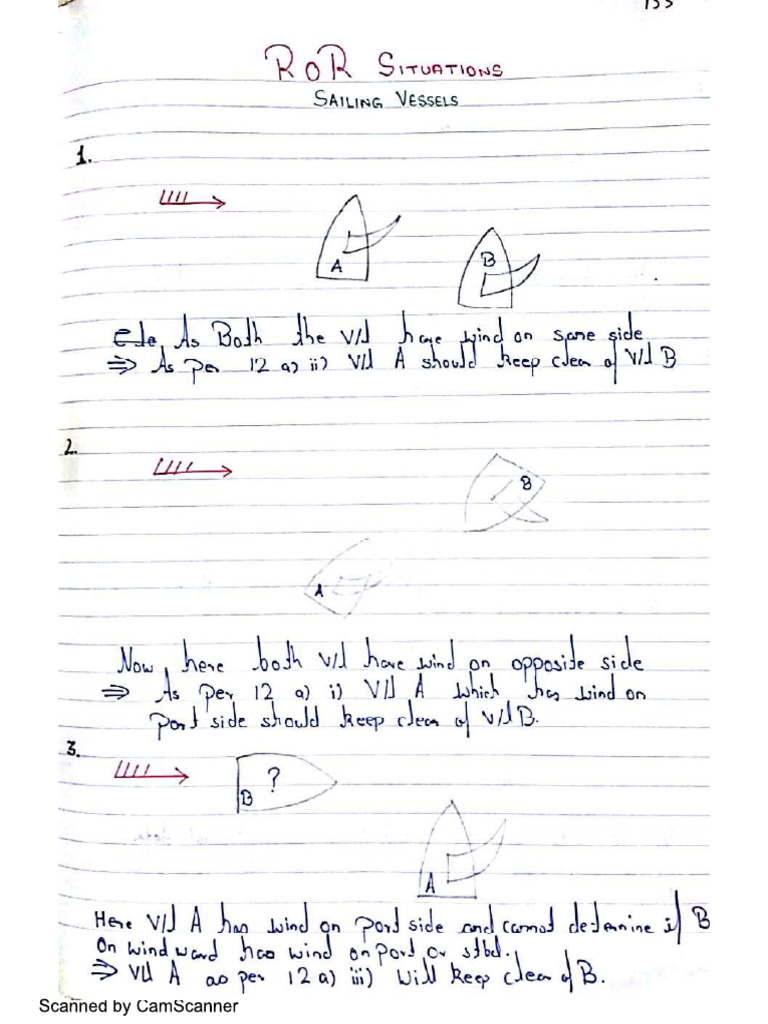 133
ROR SITUATIONS
SAILING VESSELS
1.
A
B
As Both the V/l have wind on same side
⇒ As per 12 a) ii) V/l A should keep clear of V/l B
2.
B
A
Now, here both V/l have wind on opposite side
⇒ As per 12 a) i) V/l A which has wind on
port side should keep clear of V/l B.
3.
?
B
A
Here V/l A has wind on port side and cannot determine if B
on windward has wind on port or stbd.
⇒ V/l A as per 12 a) iii) will keep clear of B.
Scanned by CamScanner